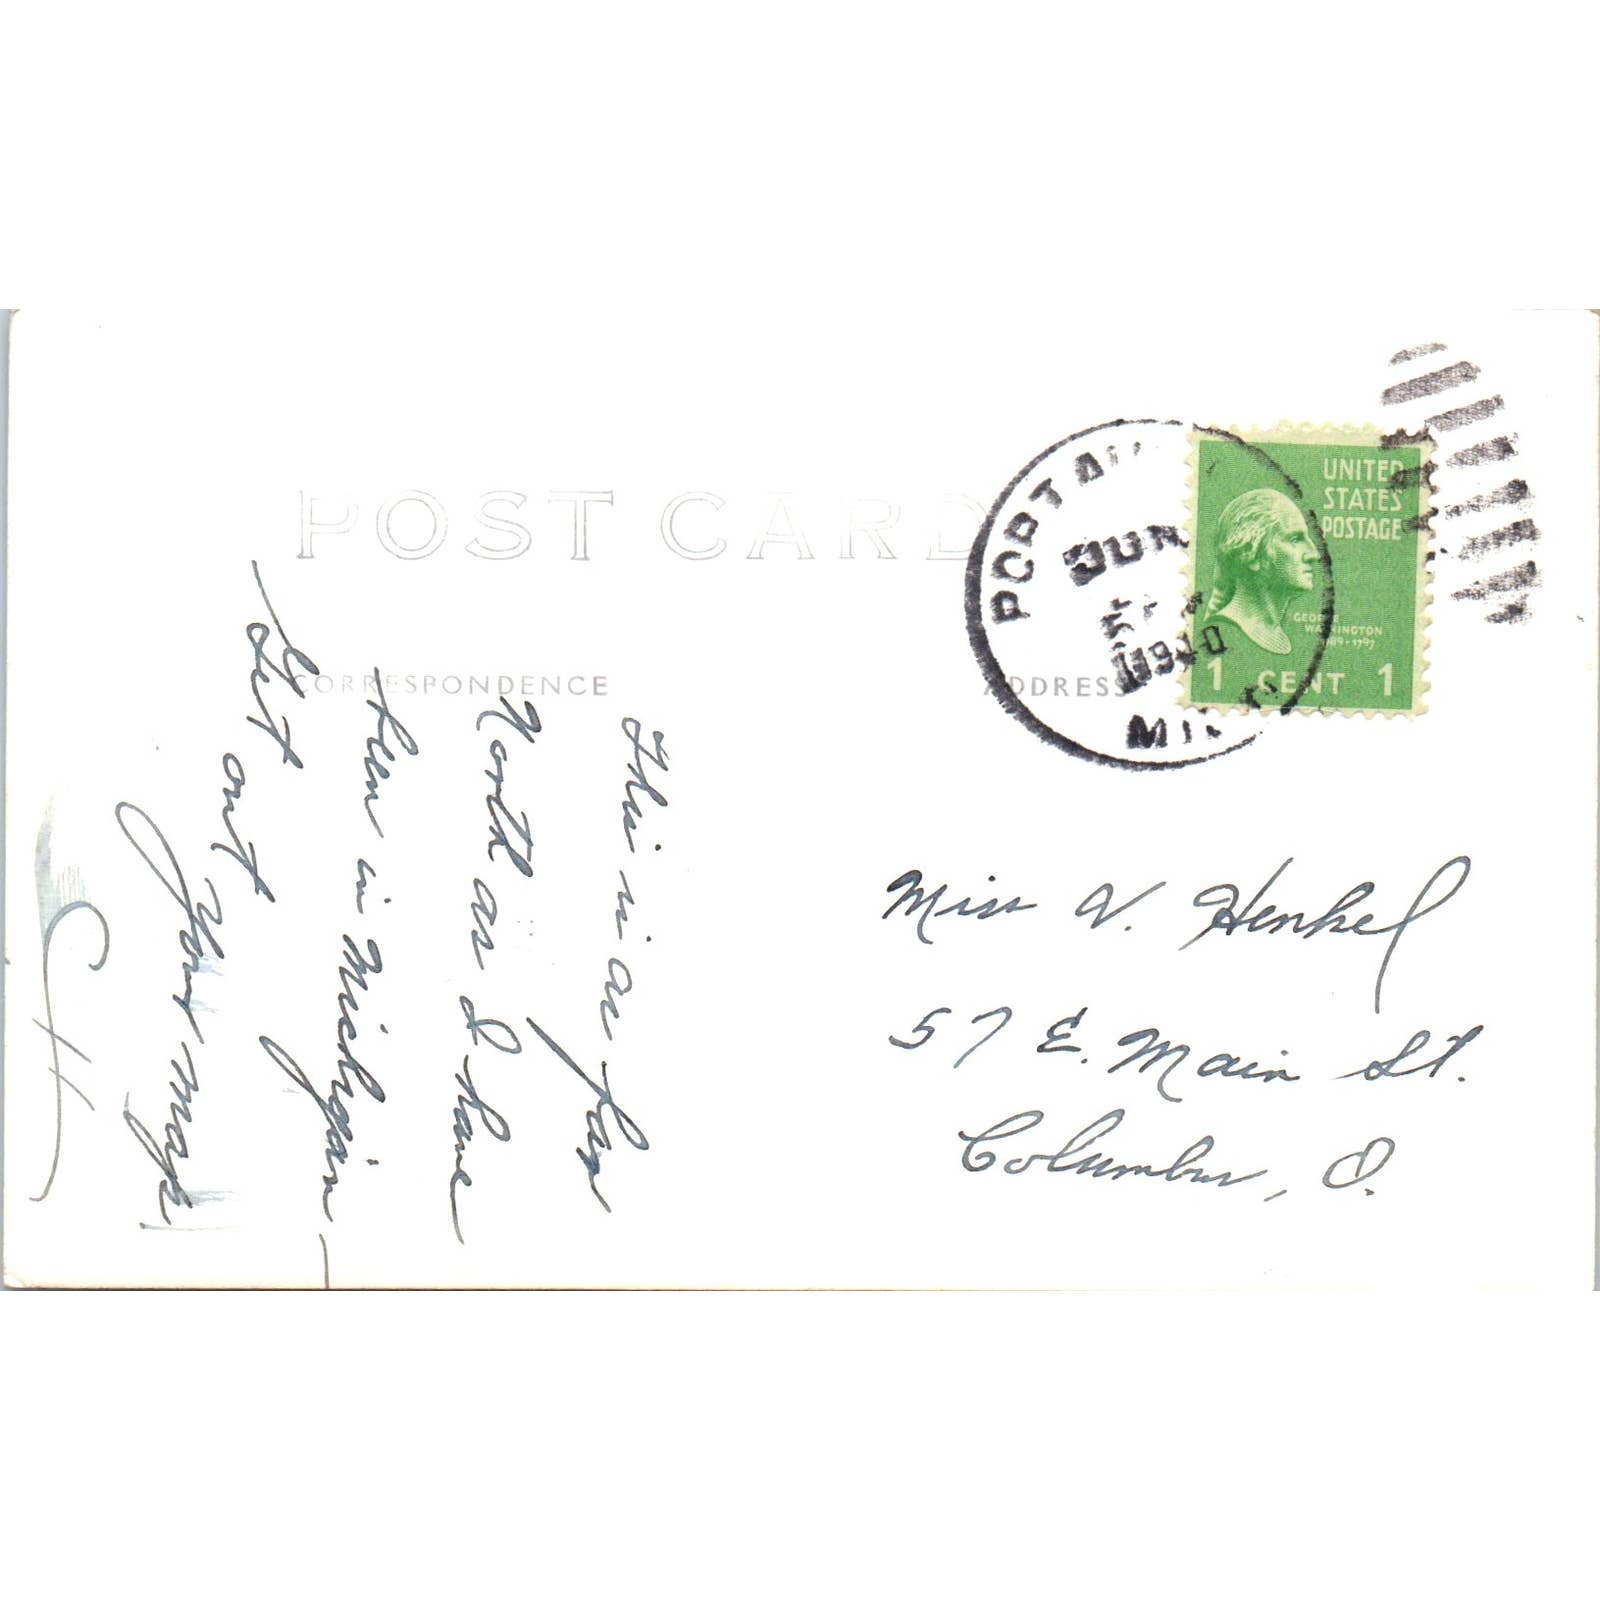 POST CARD
CORRESPONDENCE
ADDRESS
PORT AU
JUN
1940
MICH
UNITED
STATES
POSTAGE
GEORGE
WASHINGTON
1789-1797
1 CENT 1
This is as far
North as I have
been in Michigan -
Get out
Your map
Miss V. Henkel
57 E. Main St.
Columbus, O.